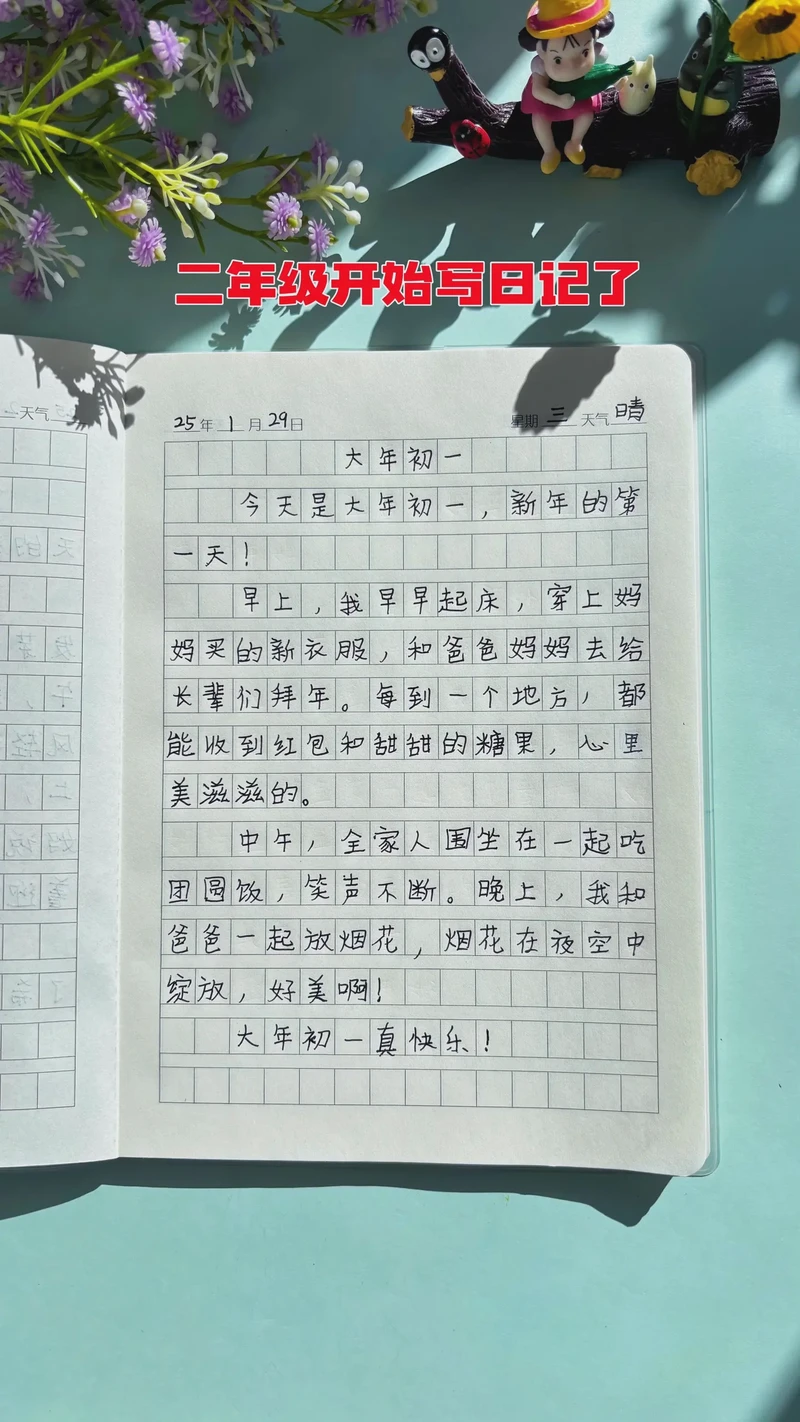 二年级开始写日记了
天气
25年1月29日 星期三 天气晴
大年初一
今天是大年初一，新年的第
一天！
早上，我早早起床，穿上妈
妈买的新衣服，和爸爸妈妈去给
长辈们拜年。每到一个地方，都
能收到红包和甜甜的糖果，心里
美滋滋的。
中午，全家人围坐在一起吃
团圆饭，笑声不断。晚上，我和
爸爸一起放烟花，烟花在夜空中
绽放，好美啊！
大年初一真快乐！